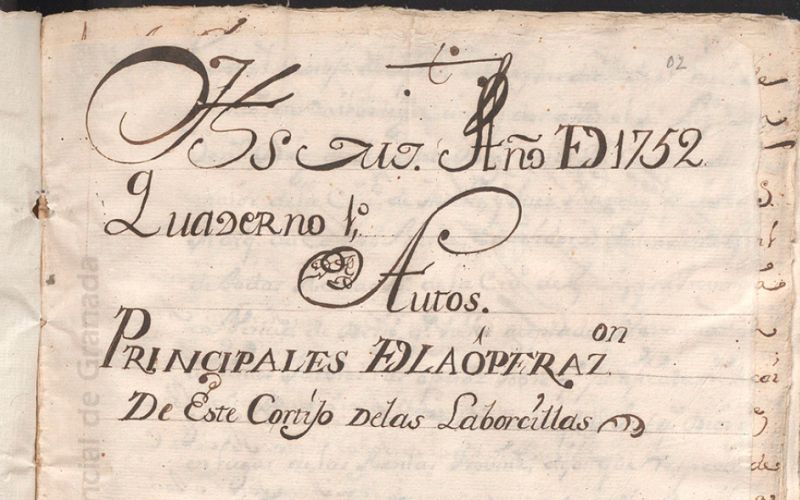 02
Año ED 1752
Quaderno 1º
Autos.
PRINCIPALES EDLA ÓPERAZon
De Este Cortijo delas Laborcillas
ncial de Granada